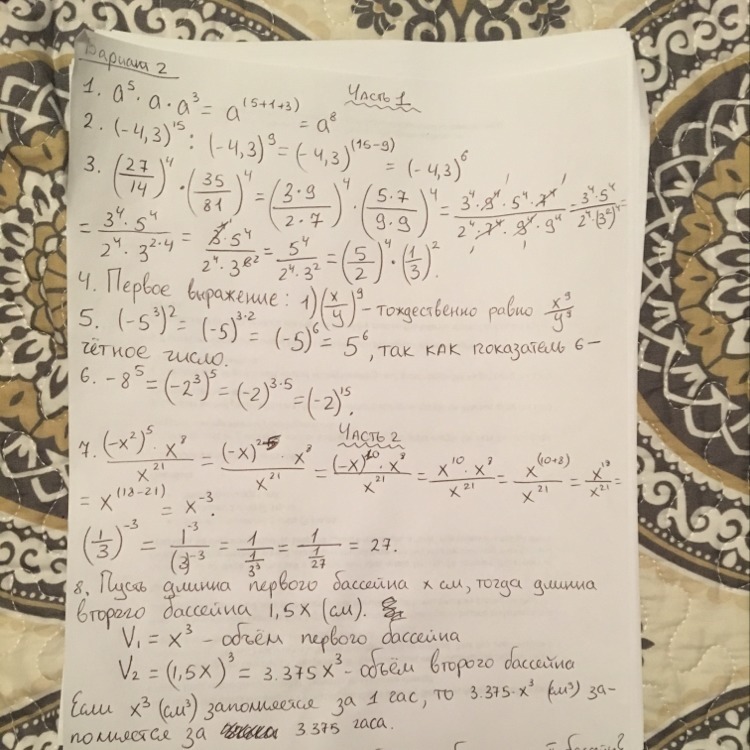 Вариант 2
Часть 1
1. a⁵ · a · a³ = a⁽⁵⁺¹⁺³⁾ = a⁸
2. (-4,3)¹⁵ : (-4,3)⁹ = (-4,3)⁽¹⁵⁻⁹⁾ = (-4,3)⁶
3. (27/14)⁴ · (35/81)⁴ = (3·9/2·7)⁴ · (5·7/9·9)⁴ = 3⁴·9⁴·5⁴·7⁴/2⁴·7⁴·9⁴·9⁴ = 3⁴·5⁴/2⁴·(3²)⁴ =
= 3⁴·5⁴/2⁴·3²·⁴ = 5⁴/2⁴·3² = (5/2)⁴ · (1/3)².
4. Первое выражение: 1) (x/y)⁹ - тождественно равно x⁹/y⁹
5. (-5³)² = (-5)³·² = (-5)⁶ = 5⁶, так как показатель 6 -
чётное число.
6. -8⁵ = (-2³)⁵ = (-2)³·⁵ = (-2)¹⁵.
Часть 2
7. (-x²)⁵ · x⁸/x²¹ = (-x)²·⁵ · x⁸/x²¹ = (-x)¹⁰ · x⁸/x²¹ = x¹⁰ · x⁸/x²¹ = x⁽¹⁰⁺⁸⁾/x²¹ = x¹⁸/x²¹ =
= x⁽¹⁸⁻²¹⁾ = x⁻³.
(1/3)⁻³ = 1⁻³/(3)⁻³ = 1/(1/3³) = 1/(1/27) = 27.
8. Пусть длинна первого бассейна x см, тогда длинна
второго бассейна 1,5x (см).
V₁ = x³ - объём первого бассейна
V₂ = (1,5x)³ = 3.375x³ - объём второго бассейна
Если x³ (см³) заполняется за 1 час, то 3.375·x³ (см³) за-
полняется за 3 375 часа.